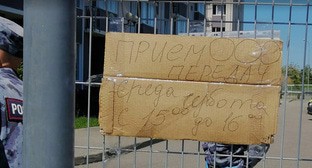 ПРИЕМ ООО
ПЕРЕДАЧ
среда суббота
с 15⁰⁰ до 16⁰⁰
РО